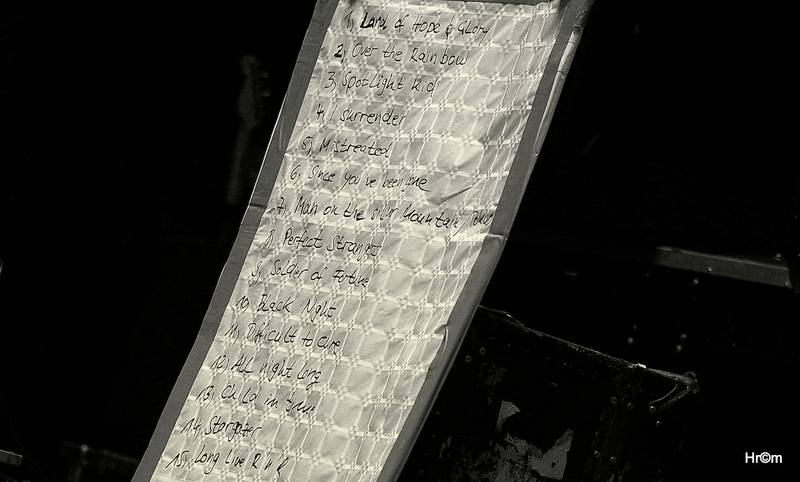 1, Land of Hope & Glory
2, Over the Rainbow
3, Spotlight Kid
4, I surrender
5, Mistreated
6, Since you've been gone
7, Man on the silver Mountain /
8, Perfect Strangers
9, Soldier of Fortune
10, Black Night
11, Difficult to Cure
12, ALL night long
13, Child in time
14, Stargazer
15, Long Live R'n'R
Hr©m